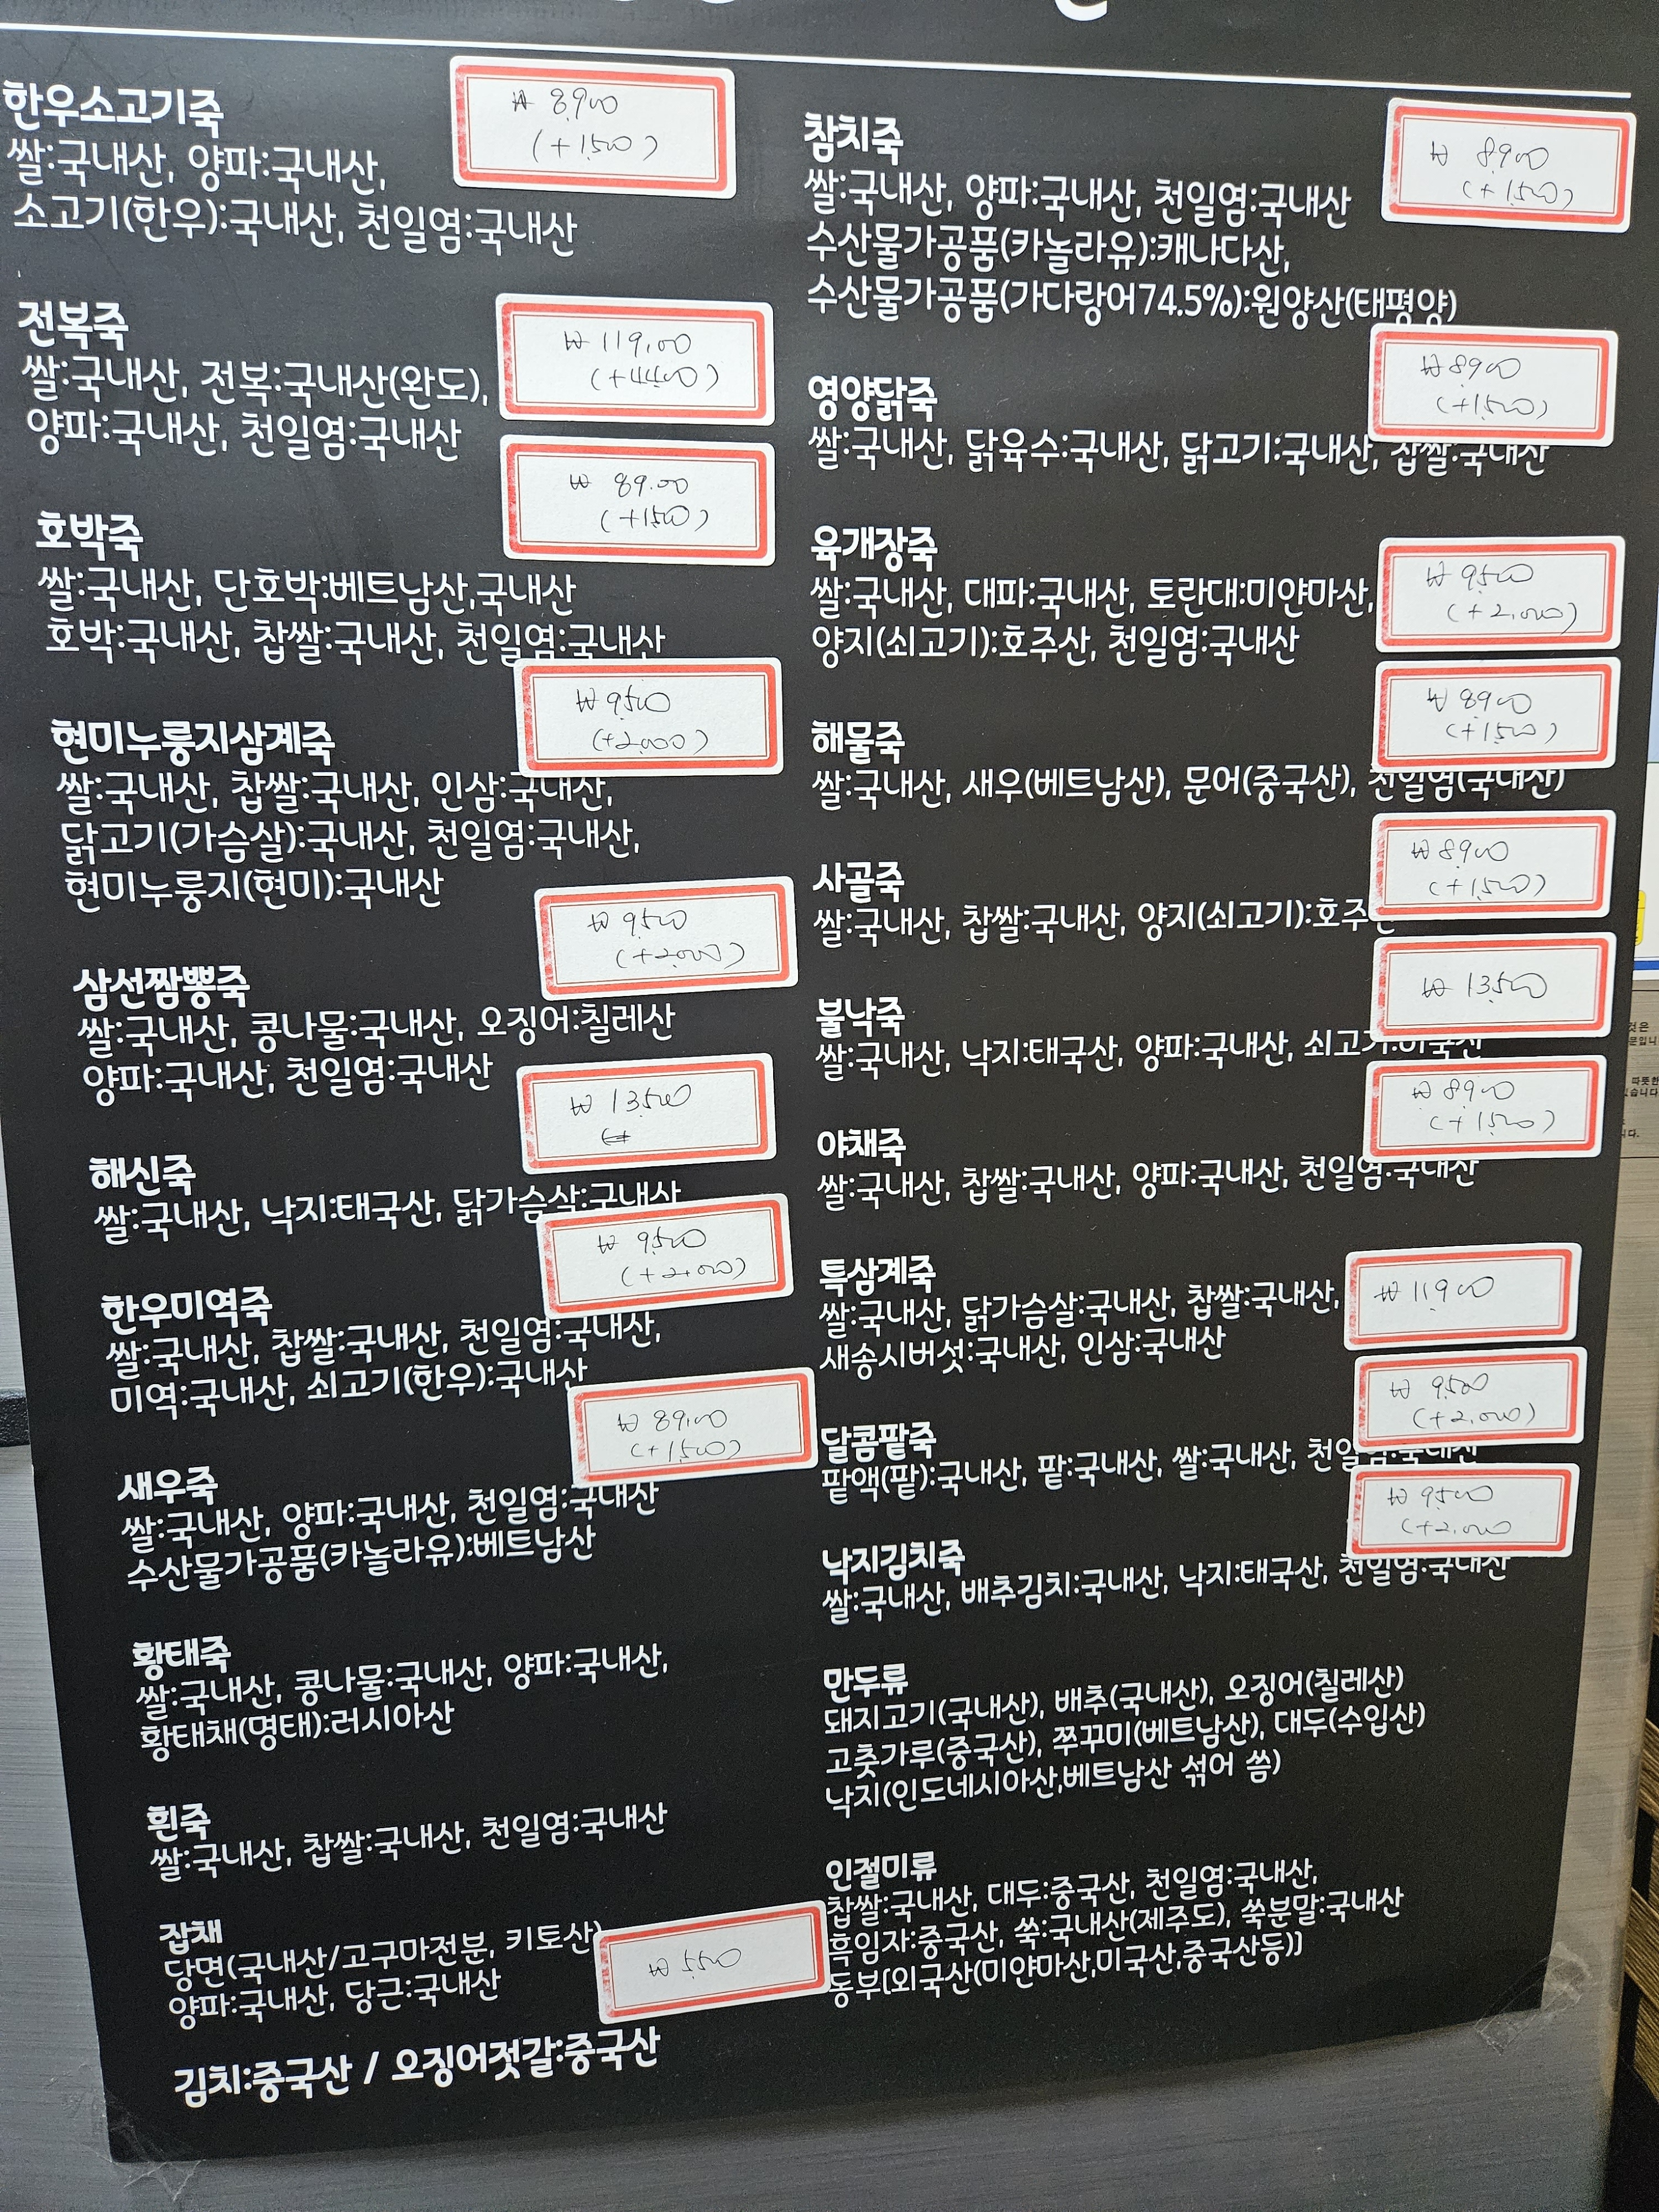 한우소고기죽
₩ 8,900
(+1,500)
쌀:국내산, 양파:국내산,
소고기(한우):국내산, 천일염:국내산
전복죽
₩ 119,00
(+4400)
쌀:국내산, 전복:국내산(완도),
양파:국내산, 천일염:국내산
호박죽
₩ 89.00
(+1500)
쌀:국내산, 단호박:베트남산,국내산
호박:국내산, 찹쌀:국내산, 천일염:국내산
현미누룽지삼계죽
₩ 9,500
(+2,000)
쌀:국내산, 찹쌀:국내산, 인삼:국내산,
닭고기(가슴살):국내산, 천일염:국내산,
현미누룽지(현미):국내산
삼선짬뽕죽
₩ 9,500
(+2,000)
쌀:국내산, 콩나물:국내산, 오징어:칠레산
양파:국내산, 천일염:국내산
해신죽
₩ 13,500
쌀:국내산, 낙지:태국산, 닭가슴살:국내산
한우미역죽
₩ 9,500
(+2,000)
쌀:국내산, 찹쌀:국내산, 천일염:국내산,
미역:국내산, 쇠고기(한우):국내산
새우죽
₩ 89,00
(+1,500)
쌀:국내산, 양파:국내산, 천일염:국내산
수산물가공품(카놀라유):베트남산
황태죽
쌀:국내산, 콩나물:국내산, 양파:국내산,
황태채(명태):러시아산
흰죽
쌀:국내산, 찹쌀:국내산, 천일염:국내산
잡채
당면(국내산/고구마전분, 키토산)
양파:국내산, 당근:국내산
₩ 5,500
김치:중국산 / 오징어젓갈:중국산
참치죽
₩ 8,900
(+1,500)
쌀:국내산, 양파:국내산, 천일염:국내산
수산물가공품(카놀라유):캐나다산,
수산물가공품(가다랑어74.5%):원양산(태평양)
영양닭죽
₩ 8,900
(+1,500)
쌀:국내산, 닭육수:국내산, 닭고기:국내산, 찹쌀:국내산
육개장죽
₩ 9,500
(+2,000)
쌀:국내산, 대파:국내산, 토란대:미얀마산,
양지(쇠고기):호주산, 천일염:국내산
해물죽
₩ 8,900
(+1,500)
쌀:국내산, 새우(베트남산), 문어(중국산), 천일염(국내산)
사골죽
₩ 8,900
(+1,500)
쌀:국내산, 찹쌀:국내산, 양지(쇠고기):호주산
불낙죽
₩ 13,500
쌀:국내산, 낙지:태국산, 양파:국내산, 쇠고기:미국산
야채죽
₩ 8,900
(+1,500)
쌀:국내산, 찹쌀:국내산, 양파:국내산, 천일염:국내산
특삼계죽
₩ 11,900
쌀:국내산, 닭가슴살:국내산, 찹쌀:국내산,
새송시버섯:국내산, 인삼:국내산
달콤팥죽
₩ 9,500
(+2,000)
팥액(팥):국내산, 팥:국내산, 쌀:국내산, 천일염:국내산
낙지김치죽
₩ 9,500
(+2,000
쌀:국내산, 배추김치:국내산, 낙지:태국산, 천일염:국내산
만두류
돼지고기(국내산), 배추(국내산), 오징어(칠레산)
고춧가루(중국산), 쭈꾸미(베트남산), 대두(수입산)
낙지(인도네시아산,베트남산 섞어 씀)
인절미류
찹쌀:국내산, 대두:중국산, 천일염:국내산,
흑임자:중국산, 쑥:국내산(제주도), 쑥분말:국내산
동부[외국산(미얀마산,미국산,중국산등)]